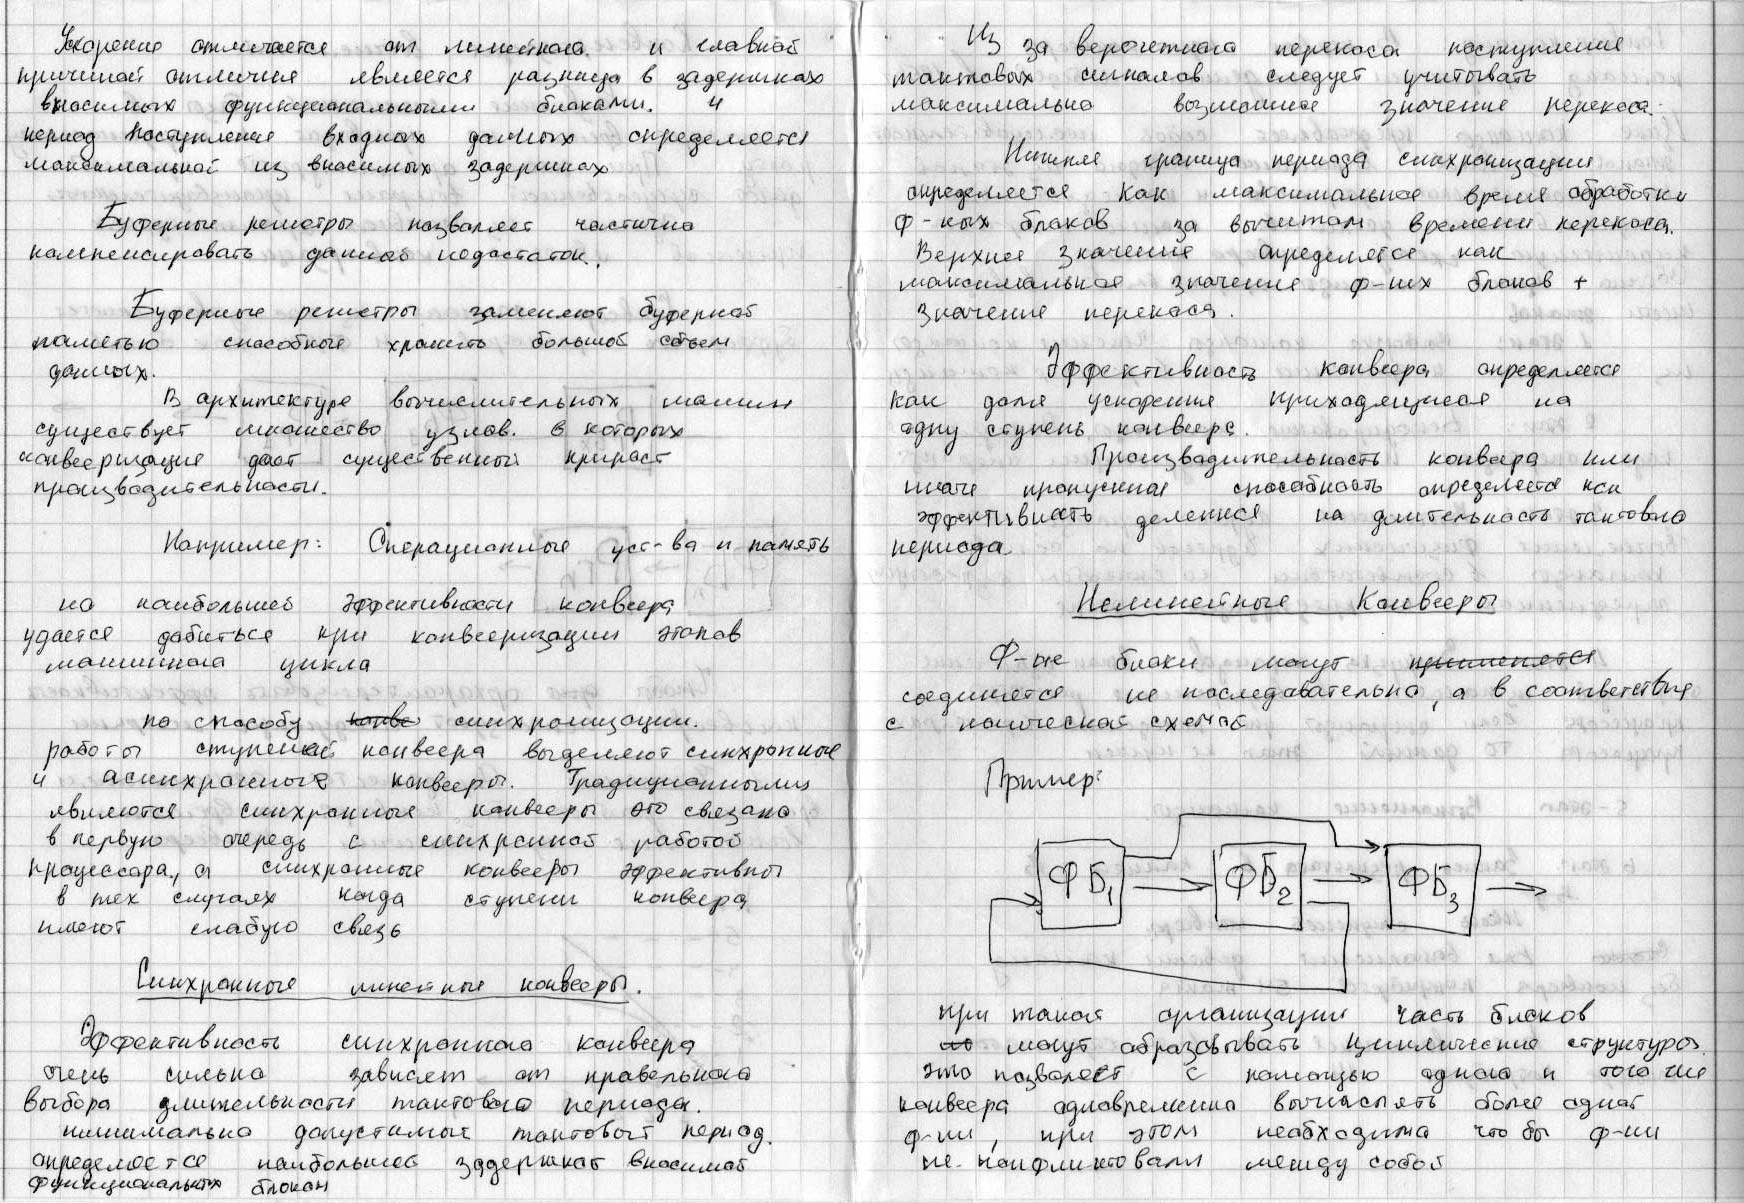 Ускорение отличается от линейного и главной
причиной отличия является разница в задержках
вносимых функциональными блоками. и
период поступления входных данных определяется
максимальной из вносимых задержках
Буферные регистры позволяет частично
компенсировать данный недостаток.
Буферные регистры заменяют буферной
памятью способные хранить большой объем
данных.
В архитектуре вычислительных машин
существует множество узлов. в которых
конвееризация дает существенный прирост
производительности.
Например: Операционные уст-ва и память
но наибольшей эффективности конвеера
удается добиться при конвееризации этапов
машинного цикла
по способу синхронизации.
работы ступеней конвеера выделяют синхронные
и асинхронные конвееры. Традиционными
являются синхронные конвееры это связано
в первую очередь с синхронной работой
процессора, а синхронные конвееры эффективны
в тех случаях когда ступени конвеера
имеют слабую связь
Синхронные линейные конвееры.
Эффективность синхронного конвеера
очень сильно зависит от правельного
выбора длительности тактового периода.
минимально допустимый тактовый период.
определяется наибольшей задержкой вносимой
функциональных блоком
Из за вероятного перекоса поступления
тактовых сигналов следует учитывать
максимально возможное значение перекоса.
Нижняя граница периода синхронизации
определяется как максимальное время обработки
ф-ных блоков за вычитом времени перекоса.
Верхнее значение определяется как
максимальное значение ф-ных блоков +
значение перекоса.
Эффективность конвеера определяется
как доля ускорения приходящиеся на
одну ступень конвеера.
Производительность конвеера или
иначе пропускная способность определяется как
эффективность деленная на длительность тактового
периода
Нелинейные Конвееры
Ф-ые блоки могут применятся
соединяется не последовательно, а в соответствие
с логической схемой
Пример:
ФБ1 ФБ2 ФБ3
при такой организации часть блоков
могут образовывать циклические структуры.
это позволяет с помощью одного и того же
конвеера одновременно вычислять более одной
ф-ии, при этом необходимо что бы ф-ии
не конфликтовали между собой